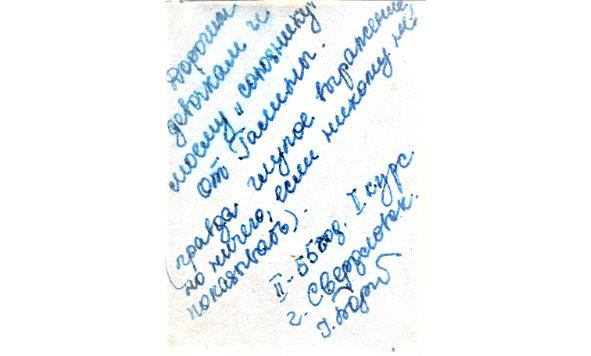 Дорогим
девочкам и
моему „союзнику"
от Галины.
(правда глупое выражение
но ничего, если никому не
показывать).
II-55год. I курс.
г. Свердловск.